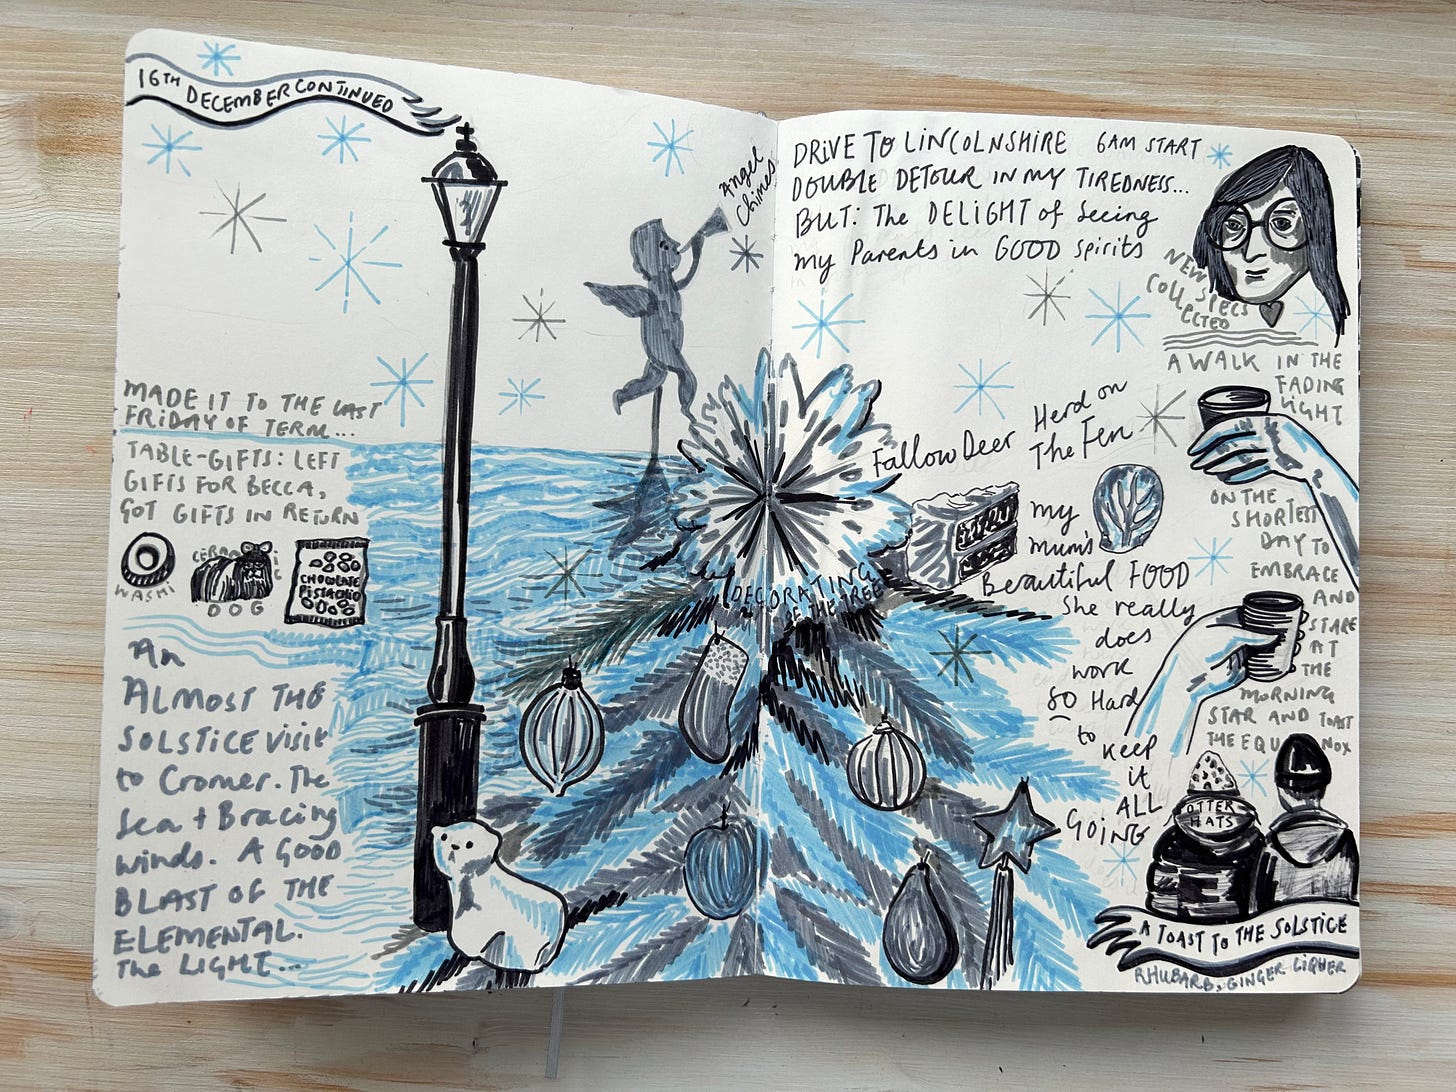 16TH DECEMBER CONTINUED
Angel
Chimes
MADE IT TO THE LAST
FRIDAY OF TERM...
TABLE-GIFTS: LEFT
GIFTS FOR BECCA,
GOT GIFTS IN RETURN
WASHI
CERAMIC
DOG
CHOCOLATE
PISTACHIO
An
ALMOST THE
SOLSTICE VISIT
to Cromer. The
Sea + Bracing
winds. A GOOD
BLAST OF THE
ELEMENTAL.
The LIGHT...
DECORATING
OF THE TREE
DRIVE TO LINCOLNSHIRE 6AM START
DOUBLE DETOUR IN MY TIREDNESS...
BUT: The DELIGHT of Seeing
my Parents in GOOD spirits
NEW
SPECS
COLLECTED
Fallow Deer
Herd on
The Fen
my
mum's
Beautiful FOOD
She really
does
work
SO Hard
to KEEP
it
ALL
GOING
A WALK IN THE
FADING
LIGHT
ON THE
SHORTEST
DAY TO
EMBRACE
AND
STARE
AT
THE
MORNING
STAR AND TOAST
THE EQUINOX
OTTER
HATS
A TOAST TO THE SOLSTICE
RHUBARB, GINGER LIQUER